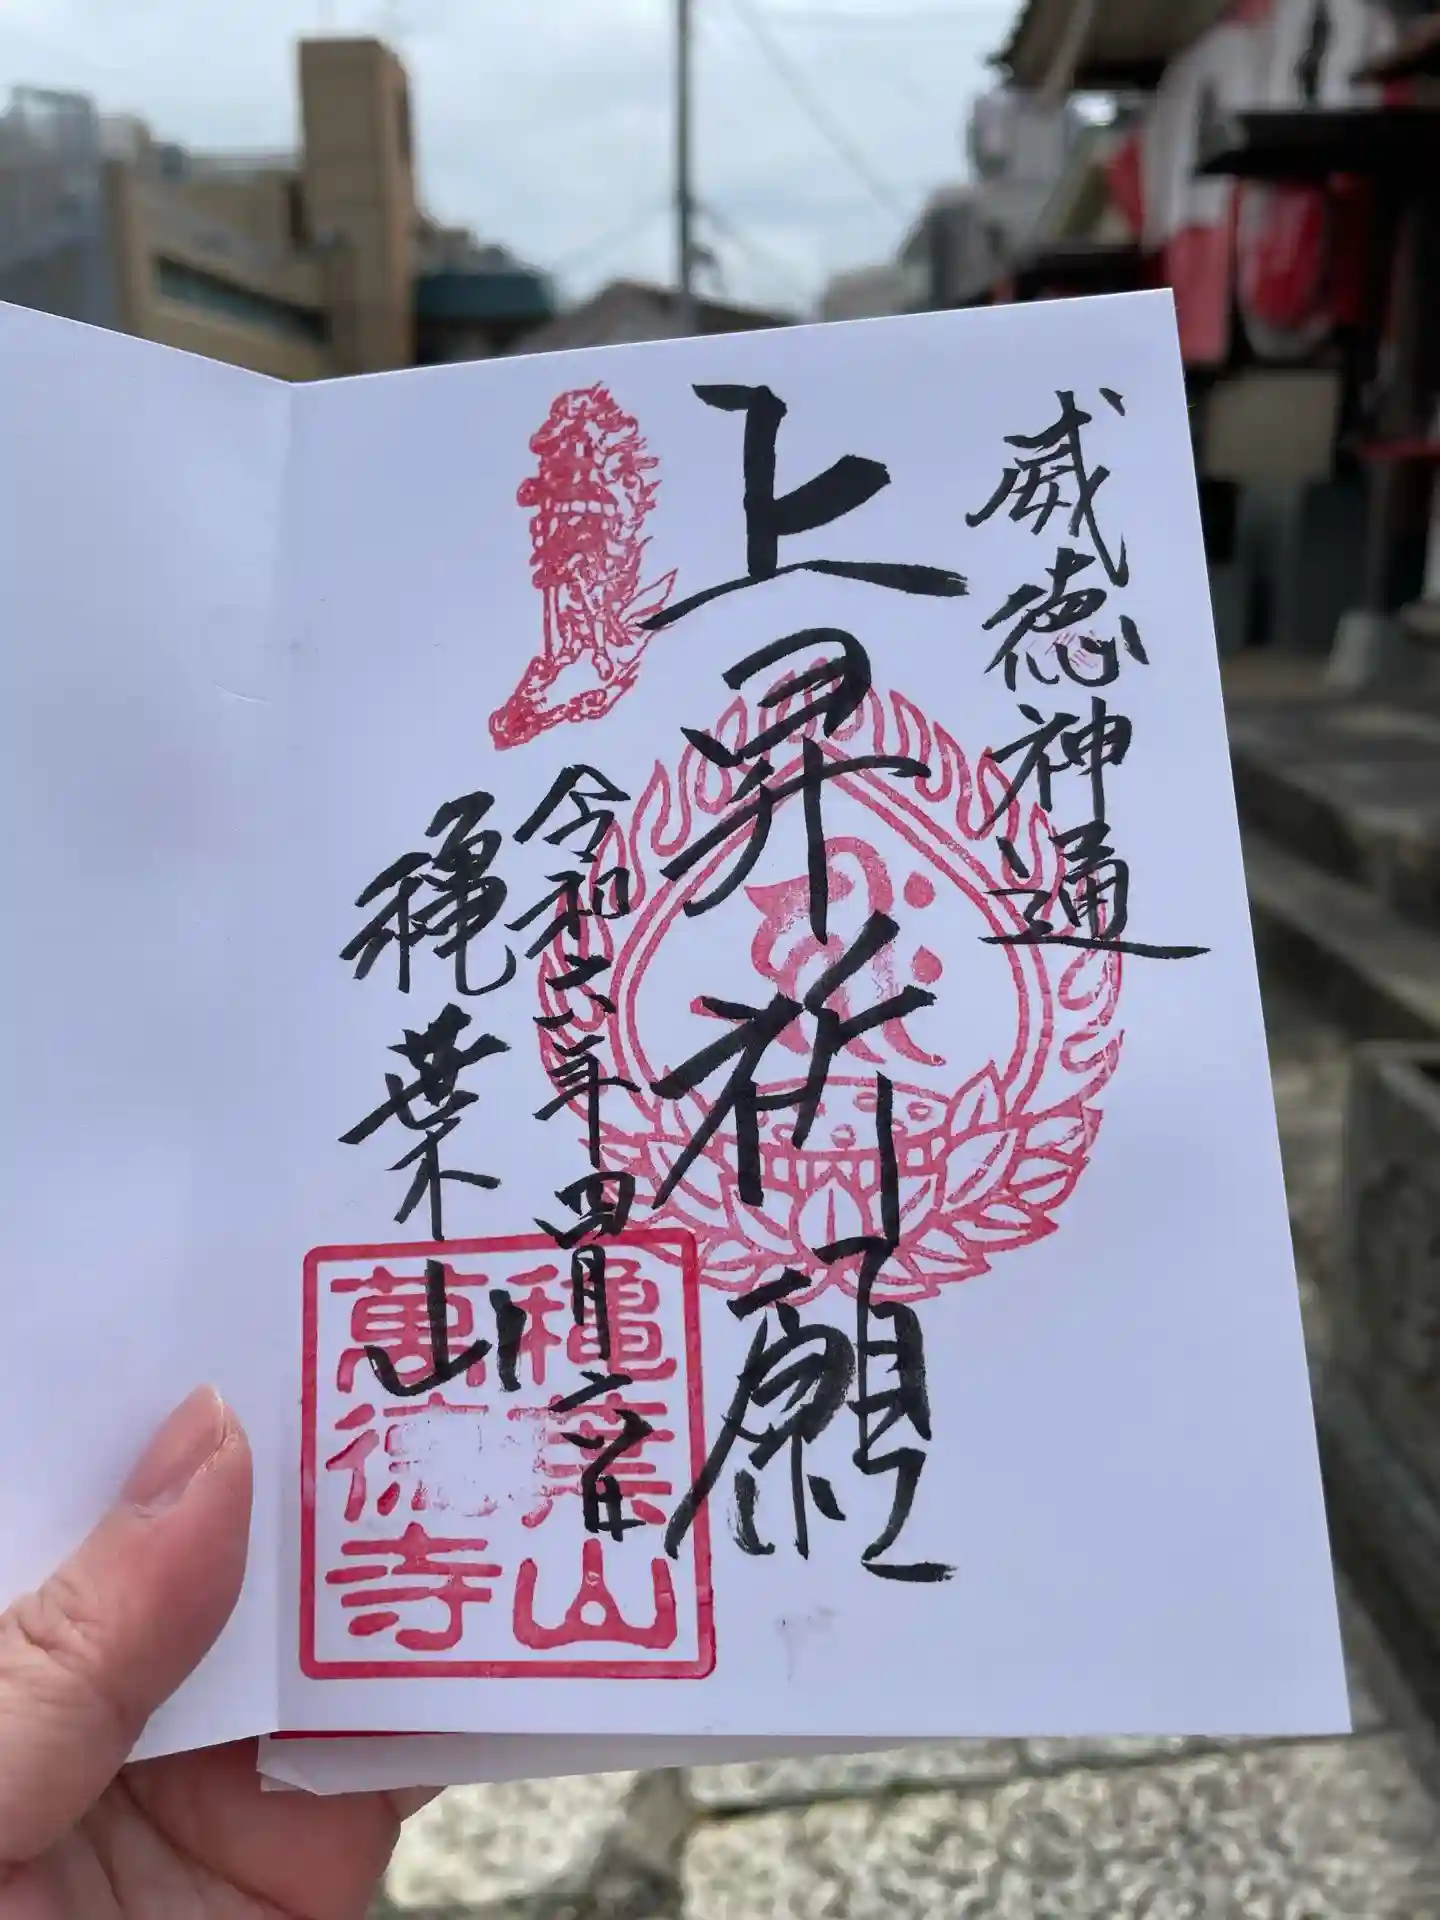 威徳神通
上昇祈願
令和六年四月六日
穐葉山
穐葉山
萬徳寺